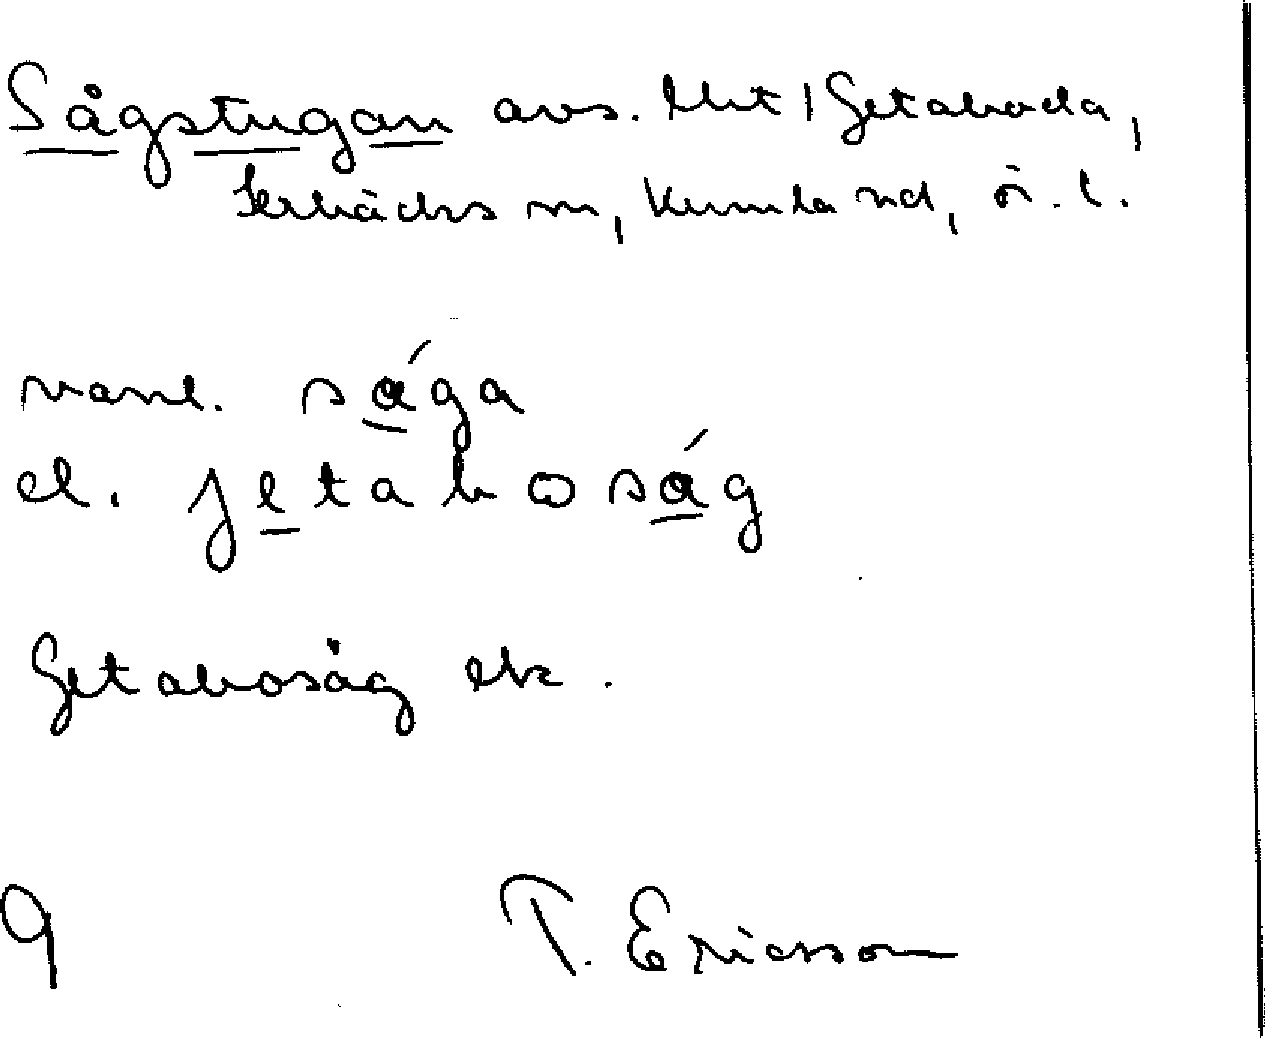 Sågstugan avs. lht 1 Getaboda,
Lerbäcks sn, Kumla hd, Ö. l.
vanl. sǻga
el. jetabosǻg
Getabosåg ek.
9 T. Ericsson